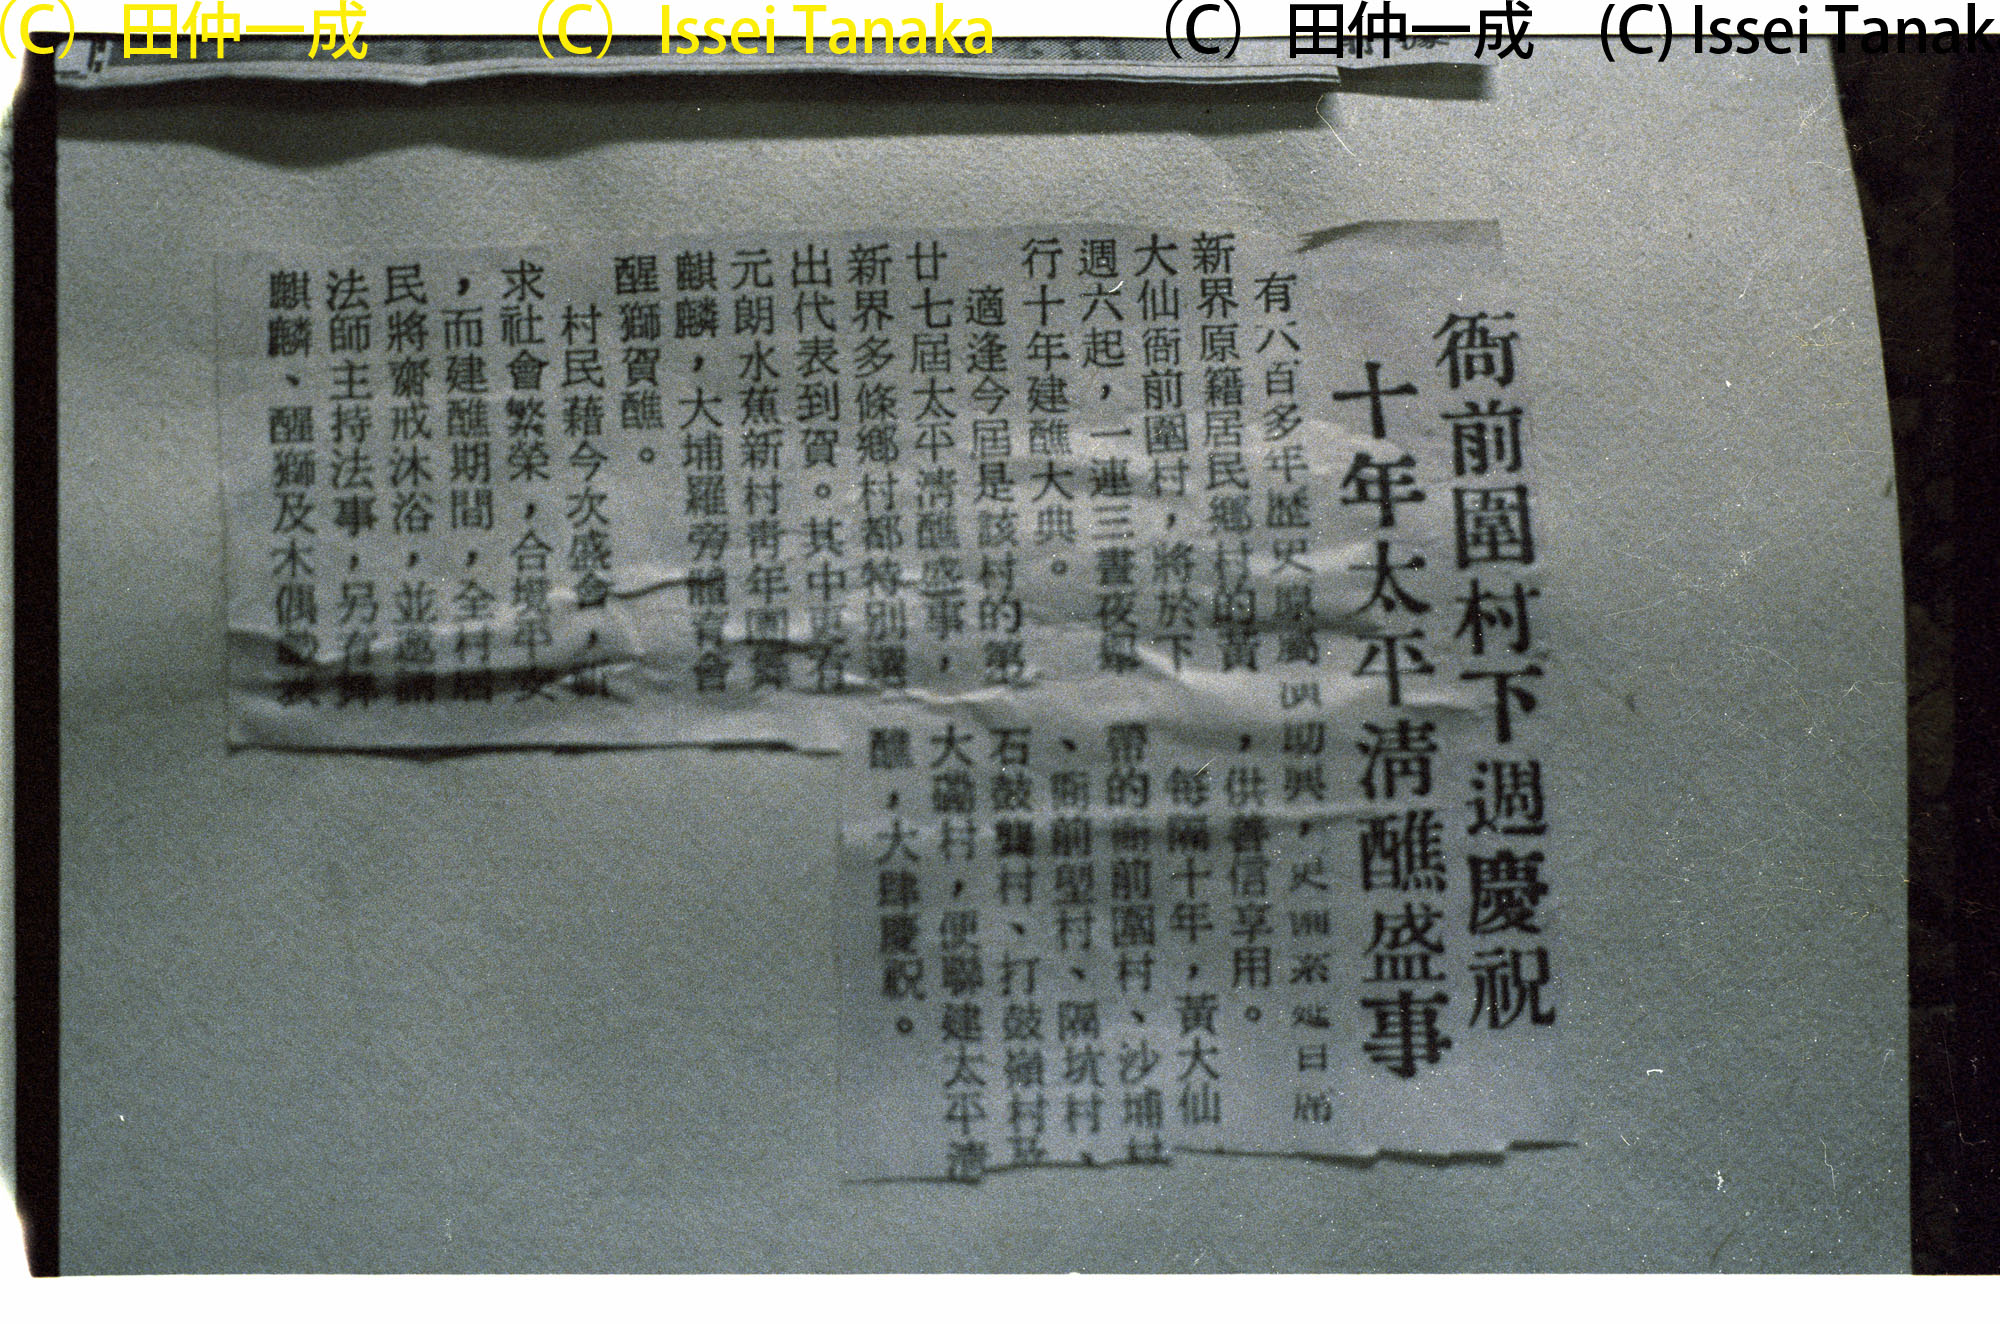 (C) 田仲一成 (C) Issei Tanaka (C) 田仲一成 (C) Issei Tanak
衙前圍村下週慶祝
十年太平清醮盛事
有六百多年歷史
新界原籍居民鄉村的黃
大仙衙前圍村，將於下
週六起，一連三晝夜舉
行十年建醮大典。
適逢今屆是該村的第
廿七屆太平清醮盛事，
新界多條鄉村都特別選
出代表到賀。其中更有
元朗水蕉新村青年
麒麟，大埔羅旁體育會
醒獅賀醮。
村民藉今次盛會，祈
求社會繁榮，合境平安
，而建醮期間，全村居
民將齋戒沐浴，並邀請
法師主持法事，另有舞
麒麟、醒獅及木偶
助興，
，供善信享用。
每隔十年，黃大仙
帶的衙前圍村、沙埔村
、衙前塱村、隔坑村、
石鼓壟村、打鼓嶺村及
大磡村，便聯建太平清
醮，大肆慶祝。